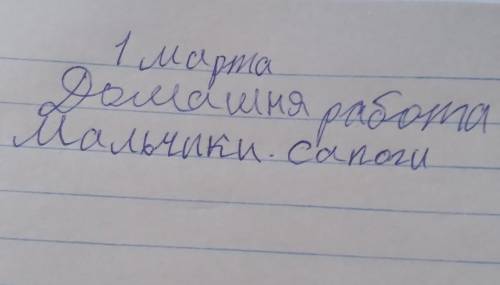 1 марта
Домашня работа
Мальчики. сапоги